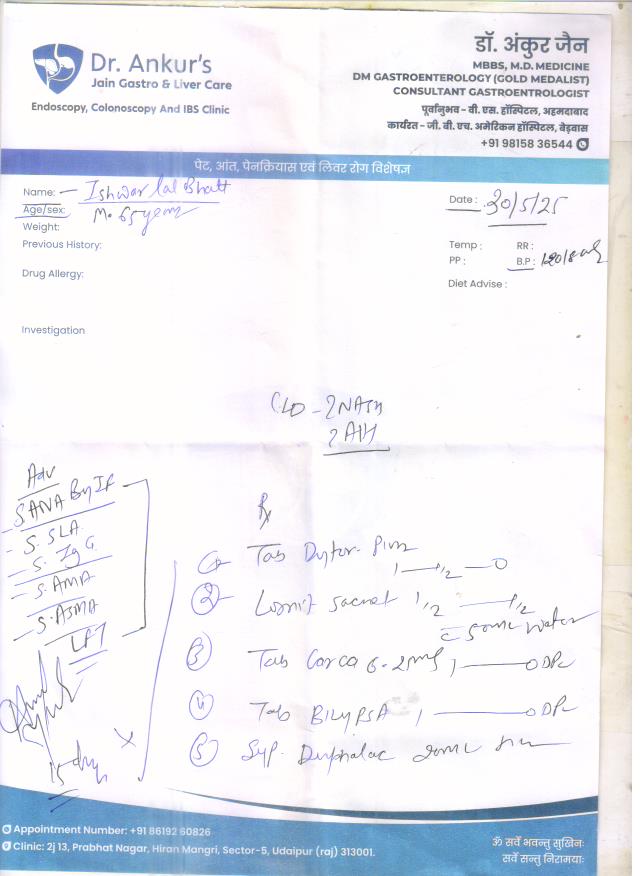 डॉ. अंकुर जैन
MBBS, M.D. MEDICINE
DM GASTROENTEROLOGY (GOLD MEDALIST)
CONSULTANT GASTROENTROLOGIST
पूर्वानुभव - वी. एस. हॉस्पिटल, अहमदाबाद
कार्यरत - जी. बी. एच. अमेरिकन हॉस्पिटल, बेड़वास
+91 98158 36544
Dr. Ankur's
Jain Gastro & Liver Care
Endoscopy, Colonoscopy And IBS Clinic
पेट, आंत, पेनक्रियास एवं लिवर रोग विशेषज्ञ
Name: - Ishwar lal Bhatt
Age/sex: M. 65 years
Weight:
Previous History:
Drug Allergy:
Investigation
Date: 30/5/25
Temp : RR :
PP : B.P : 120/80
Diet Advise :
CLD - ? NASH
? AIH
Adv
S ANA By IF
S. SLA
S. IgG
S. AMA
S. ASMA
LFT
15 days
Rx
① Tab Dytor-Plus 1 — 1/2 — 0
② Sachet 1/2 — 1/2
c̄ 50ml water
③ Tab 6.25mg 1 — 0
④ Tab BILYPSA 1 — 0
⑤ Syp. Duphalac 20ml
Appointment Number: +91 86192 60826
Clinic: 2j 13, Prabhat Nagar, Hiran Mangri, Sector-5, Udaipur (raj) 313001.
ॐ सर्वे भवन्तु सुखिनः
सर्वे सन्तु निरामयाः